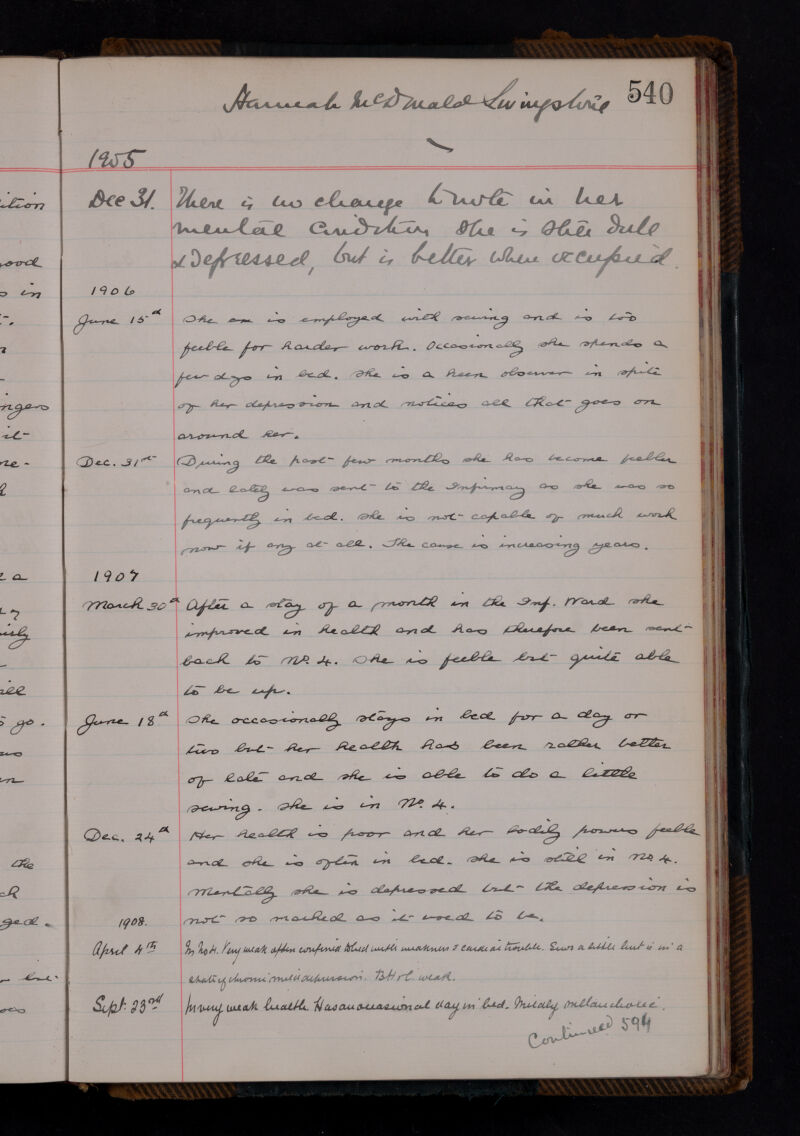 540
Hannah McDonald Livingstone
1905
Dec 31. There is no change to note in her
mental condition she is still dull
& depressed, but is better when occupied.
1906
June 15th She am is employed with sewing and is too
feeble for harder work. Occasionally she spends a
few dys in bed. She is a keen observer in spite
of her depression and notices all that goes on
around her.
Dec. 31st During the past few months she has become feebler
and lately was sent to the Infirmary as she was so
frequently in bed. She is not capable of much work
now if any at all. The cause is increasing years.
1907
March 30th After a stay of a month in the Inf. Ward she
improved in health and has therefore been sent
back to No. 4. She is feeble but quite able
to be up.
June 18th She occasionally stays in bed for a day or
two but her health has been rather better
of late and she is able to do a little
sewing. She is in No. 4.
Dec. 24th Her health is poor and her bodily powers feeble
and she is often in bed. She is still in No 4.
Mentally she is depressed but the depression is
not so marked as it used to be.
1908.
April 4th In No 4. Very weak often confined to bed with weakness & cardiac trouble. Sews a little but is in a
state of chronic mild depression. B H & C weak.
Sept. 23rd In very weak health. Has an occasional day in bed. Mildly melancholic.
Continued 594
ition
ood
s in
ngers
it
ne-
a
ill
s go.
the
ch
ged.